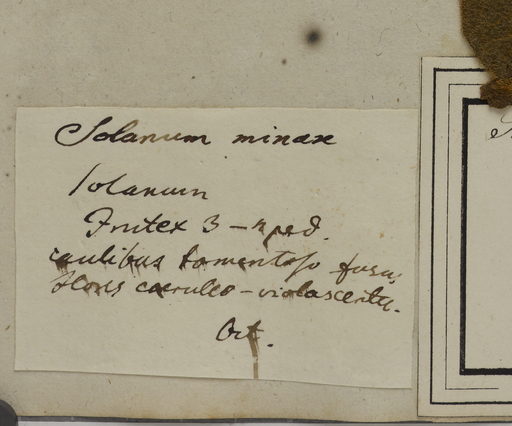 Solanum minax
Solanum
Frutex 3-4 ped.
caulibus tomentoso fusc.
flores coeruleo-violascentes.
Oct.